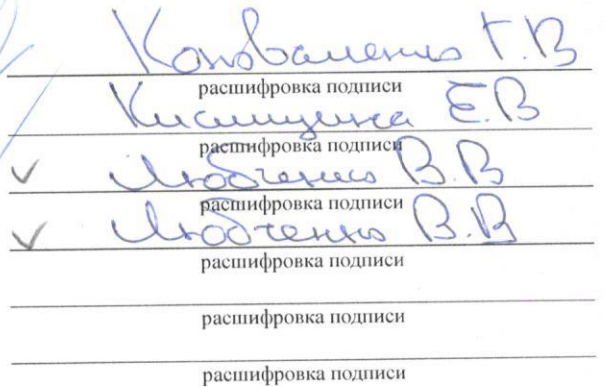 Коноваленко Г.В
расшифровка подписи
Кислицина Е.В
расшифровка подписи
Любченко В.В
расшифровка подписи
Любченко В.В
расшифровка подписи
расшифровка подписи
расшифровка подписи